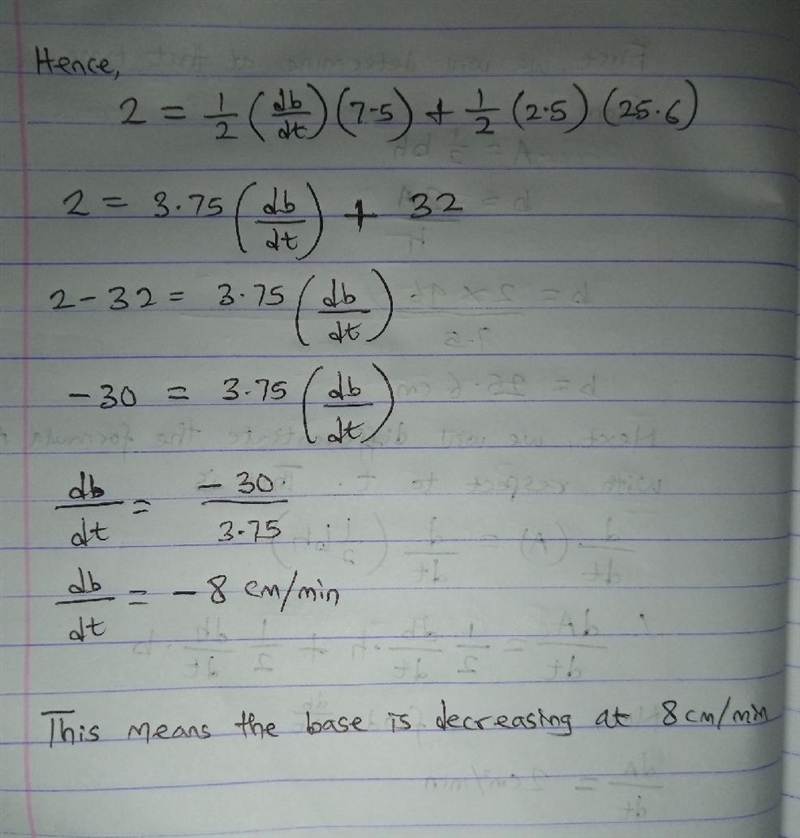 Hence,
2 = 1/2 (db/dt)(7.5) + 1/2 (2.5)(25.6)
2 = 3.75 (db/dt) + 32
2 - 32 = 3.75 (db/dt)
-30 = 3.75 (db/dt)
db/dt = -30/3.75
db/dt = -8 cm/min
This means the base is decreasing at 8cm/min